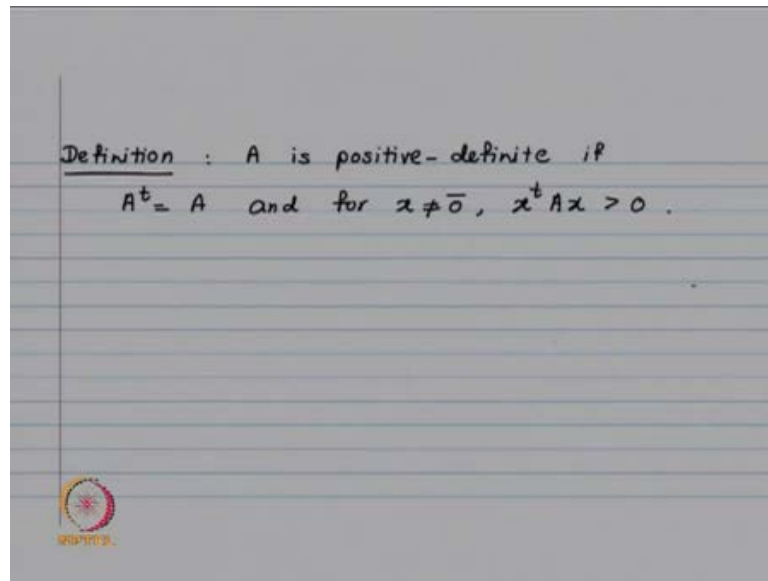 Definition : A is positive-definite if
Aᵗ = A and for x ≠ 0̅, xᵗ Ax > 0 .
NPTEL